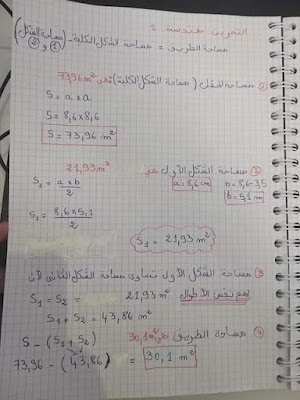 التمرين هندسة :
مساحة الطريق = مساحة الشكل الكلية - (مساحة الشكل 1 و 2)
① مساحة الحقل (مساحة الشكل الكلية) هي 73,96 m²
S = a x a
S = 8,6 x 8,6
S = 73,96 m²
② مساحة الشكل الأول هي 21,93 m²
S₁ = a x b / 2
a = 8,6 m b = 8,6 - 3,5
b = 5,1 m
S₁ = 8,6 x 5,1 / 2
S₁ = 21,93 m²
③ مساحة الشكل الأول تساوي مساحة الشكل الثاني لأن
لهم نفس الأطوال
S₁ = S₂ = 21,93 m²
S₁ + S₂ = 43,86 m²
④ مساحة الطريق هي 30,1 m²
S - (S₁ + S₂)
73,96 - (43,86) = 30,1 m²